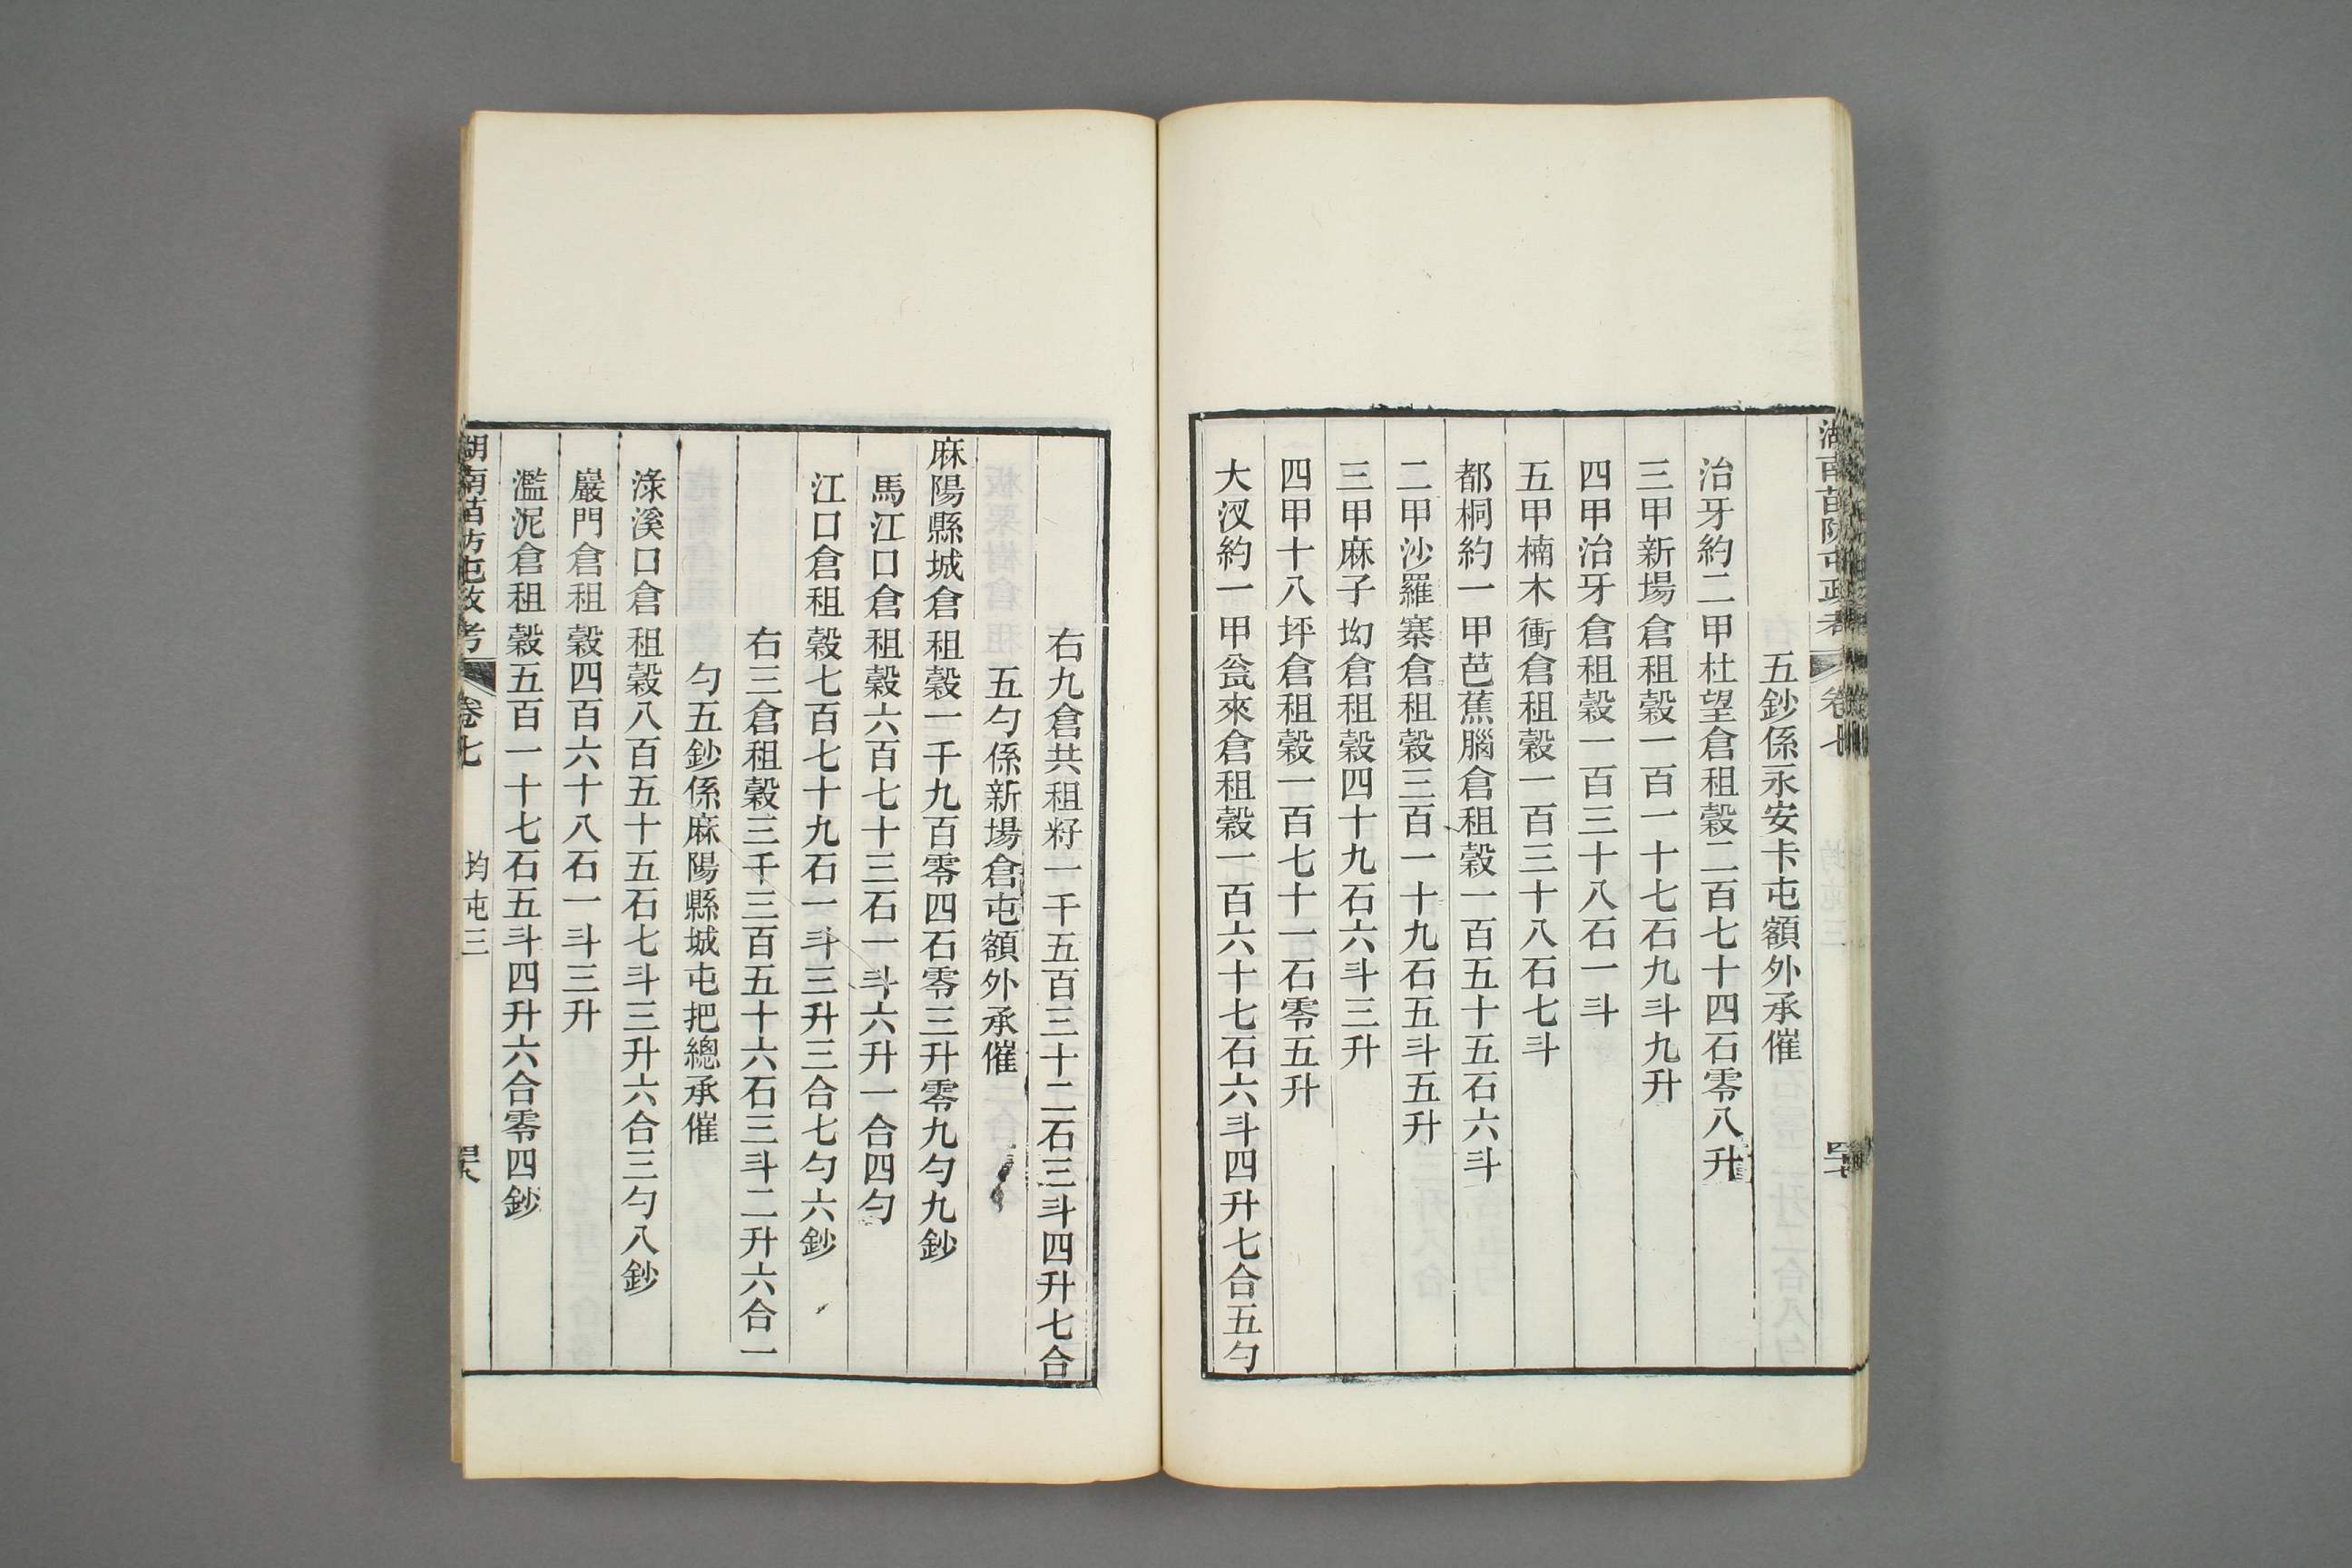 湖南苗防屯政考 卷七
五鈔係永安卡屯額外承催
治牙約二甲杜望倉租穀二百七十四石零八升
三甲新場倉租穀一百一十七石九斗九升
四甲治牙倉租穀一百三十八石一斗
五甲楠木衝倉租穀一百三十八石七斗
都桐約一甲芭蕉腦倉租穀一百五十五石六斗
二甲沙羅寨倉租穀三百一十九石五斗五升
三甲麻子坳倉租穀四十九石六斗三升
四甲十八坪倉租穀一百七十一石零五升
大汊約一甲瓮來倉租穀一百六十七石六斗四升七合五勺
右九倉共租籽一千五百三十二石三斗四升七合
五勺係新場倉屯額外承催
麻陽縣城倉租穀一千九百零四石零三升零九勺九鈔
馬江口倉租穀六百七十三石一斗六升一合四勺
江口倉租穀七百七十九石一斗三升三合七勺六鈔
右三倉租穀三千三百五十六石三斗二升六合一
勺五鈔係麻陽縣城屯把總承催
淥溪口倉租穀八百五十五石七斗三升六合三勺八鈔
巖門倉租穀四百六十八石一斗三升
濫泥倉租穀五百一十七石五斗四升六合零四鈔
湖南苗防屯政考 卷七 均屯三